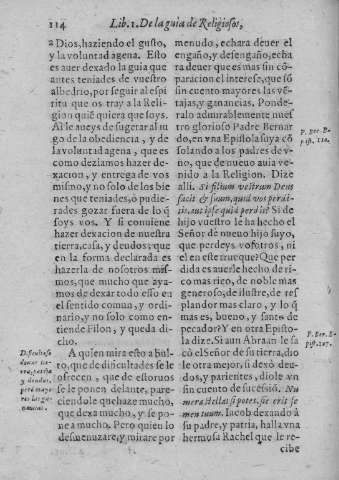 114 Lib. 1. De la guia de Religiosos,
a Dios, haziendo el gusto,
y la voluntad agena. Esto
es auer dexado la guia que
antes teniades de vuestro
albedrio, por seguir al espi
ritu que os tray a la Reli-
gion quiē quiera que soys.
Al le aueys de sugerar al ju
go de la obediencia, y de
la voluntad agena, que es
como deziamos hazer de-
xacion, y entrega de vos
mismo, y no solo de los bie
nes que teniades, ò pudie-
rades gozar fuera de lo q̃
soys vos. Y si conuiene
hazer dexacion de nuestra
tierra, casa, y deudos; que
en la forma declarada es
hazerla de nosotros mis-
mos, que mucho que aya-
mos de dexar todo esto en
el sentido comun, y ordi-
nario, y no solo como en-
tiende Filon, y queda di-
cho.
A quien mira esto a bul-
to, que de dificultades se le
ofrecen, que de estoruos
se le ponen delante, pare-
ciendole que haze mucho,
que dexa mucho, y se po-
ne a mucho. Pero quien lo
desmenuzare, y mirare por
Dificultoso
dexar tie-
rra, patria
y deudos,
pero mayo
res las ga-
nancias.
menudo, echara de uer el
engaño, y desengaño, echa
ra de uer que es mas sin cō-
paracion el interese, que sō
sin cuento mayores las vē-
tajas, y ganancias. Ponde-
ralo admirablemente nues
tro glorioso Padre Bernar
do, en vna Epistola suya cō
solando a los padres de v-
no, que de nueuo auia ve-
nido a la Religion. Dize
alli. Si filium vestrum Deus
facit & suum, quid vos perdi-
tis, aut ipse quid perdit? Si de
hijo vuestro le ha hecho el
Señor de nueuo hijo suyo,
que perdeys vosotros, ni
el en este trueque? Que per
dida es auerle hecho de ri-
co mas rico, de noble mas
generoso; de ilustre, de res
plandor mas claro, y lo q̃
mas es, bueno, y santo de
pecador? Y en otra Episto-
la dize. Si aun Abraam le sa
cò el Señor de su tierra, dio
le otra mejor, si dexò deu-
dos, y parientes, diole vn
sin cuento de sucessiō. Nu
mera stellas si potes, sic erit se
men tuum. Iacob dexando à
su padre, y patria, halla vna
hermosa Rachel que le re-
cibe
P. Ber. E-
pist. 110.
P. Ber. E-
pist. 107.